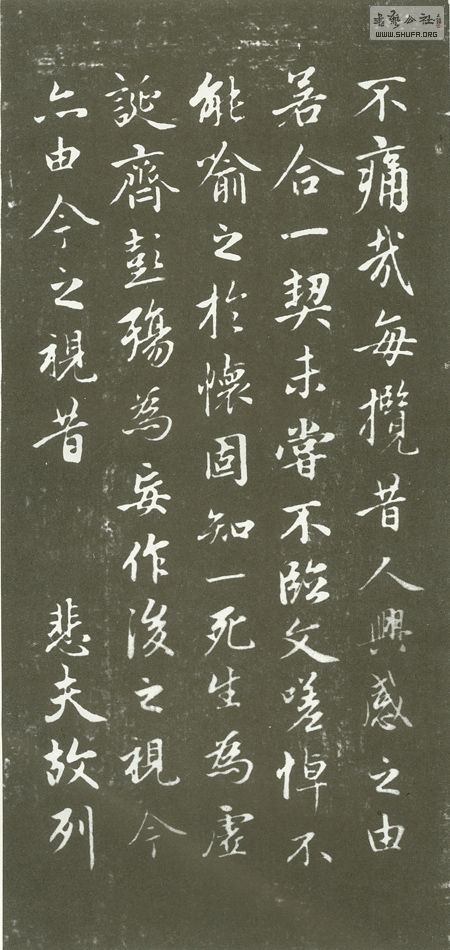 不痛哉每攬昔人興感之由
若合一契未嘗不臨文嗟悼不
能喻之於懷固知一死生為虛
誕齊彭殤為妄作後之視今
亦由今之視昔 悲夫故列
WWW.SHUFA.ORG